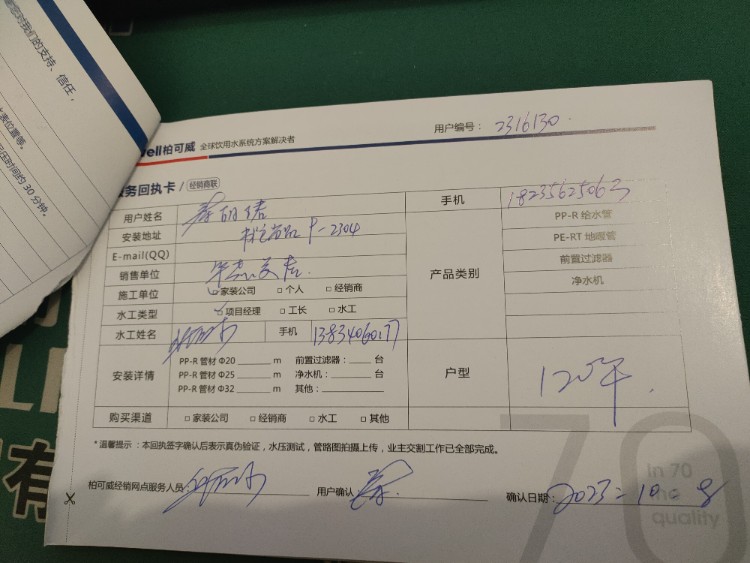 您对我们的支持、信任,
表位置等。
压时间约 30 分钟。
ell柏可威 全球饮用水系统方案解决者
用户编号: 2316130
务回执卡 / 经销商联
用户姓名
手机 18235625063
安装地址 P-2304
E-mail(QQ)
销售单位
产品类别
PP-R 给水管
PE-RT 地暖管
前置过滤器
净水机
施工单位 □家装公司 □个人 □经销商
水工类型 □项目经理 □工长 □水工
水工姓名 手机 13834060177
安装详情
PP-R 管材 Φ20 m 前置过滤器: 台
PP-R 管材 Φ25 m 净水机: 台
PP-R 管材 Φ32 m 其他:
户型 120平
购买渠道 □家装公司 □经销商 □水工 □其他
*温馨提示:本回执签字确认后表示真伪验证,水压测试,管路图拍摄上传,业主交割工作已全部完成。
柏可威经销网点服务人员:
用户确认:
确认日期: 2023-10 8
70
in 70
quality
有